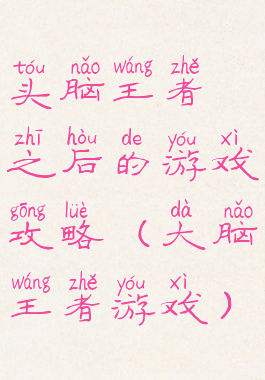 tóu nǎo wáng zhě
头脑王者
zhī hòu de yóu xì
之后的游戏
gōng lüè dà nǎo
攻略（大脑
wáng zhě yóu xì
王者游戏）